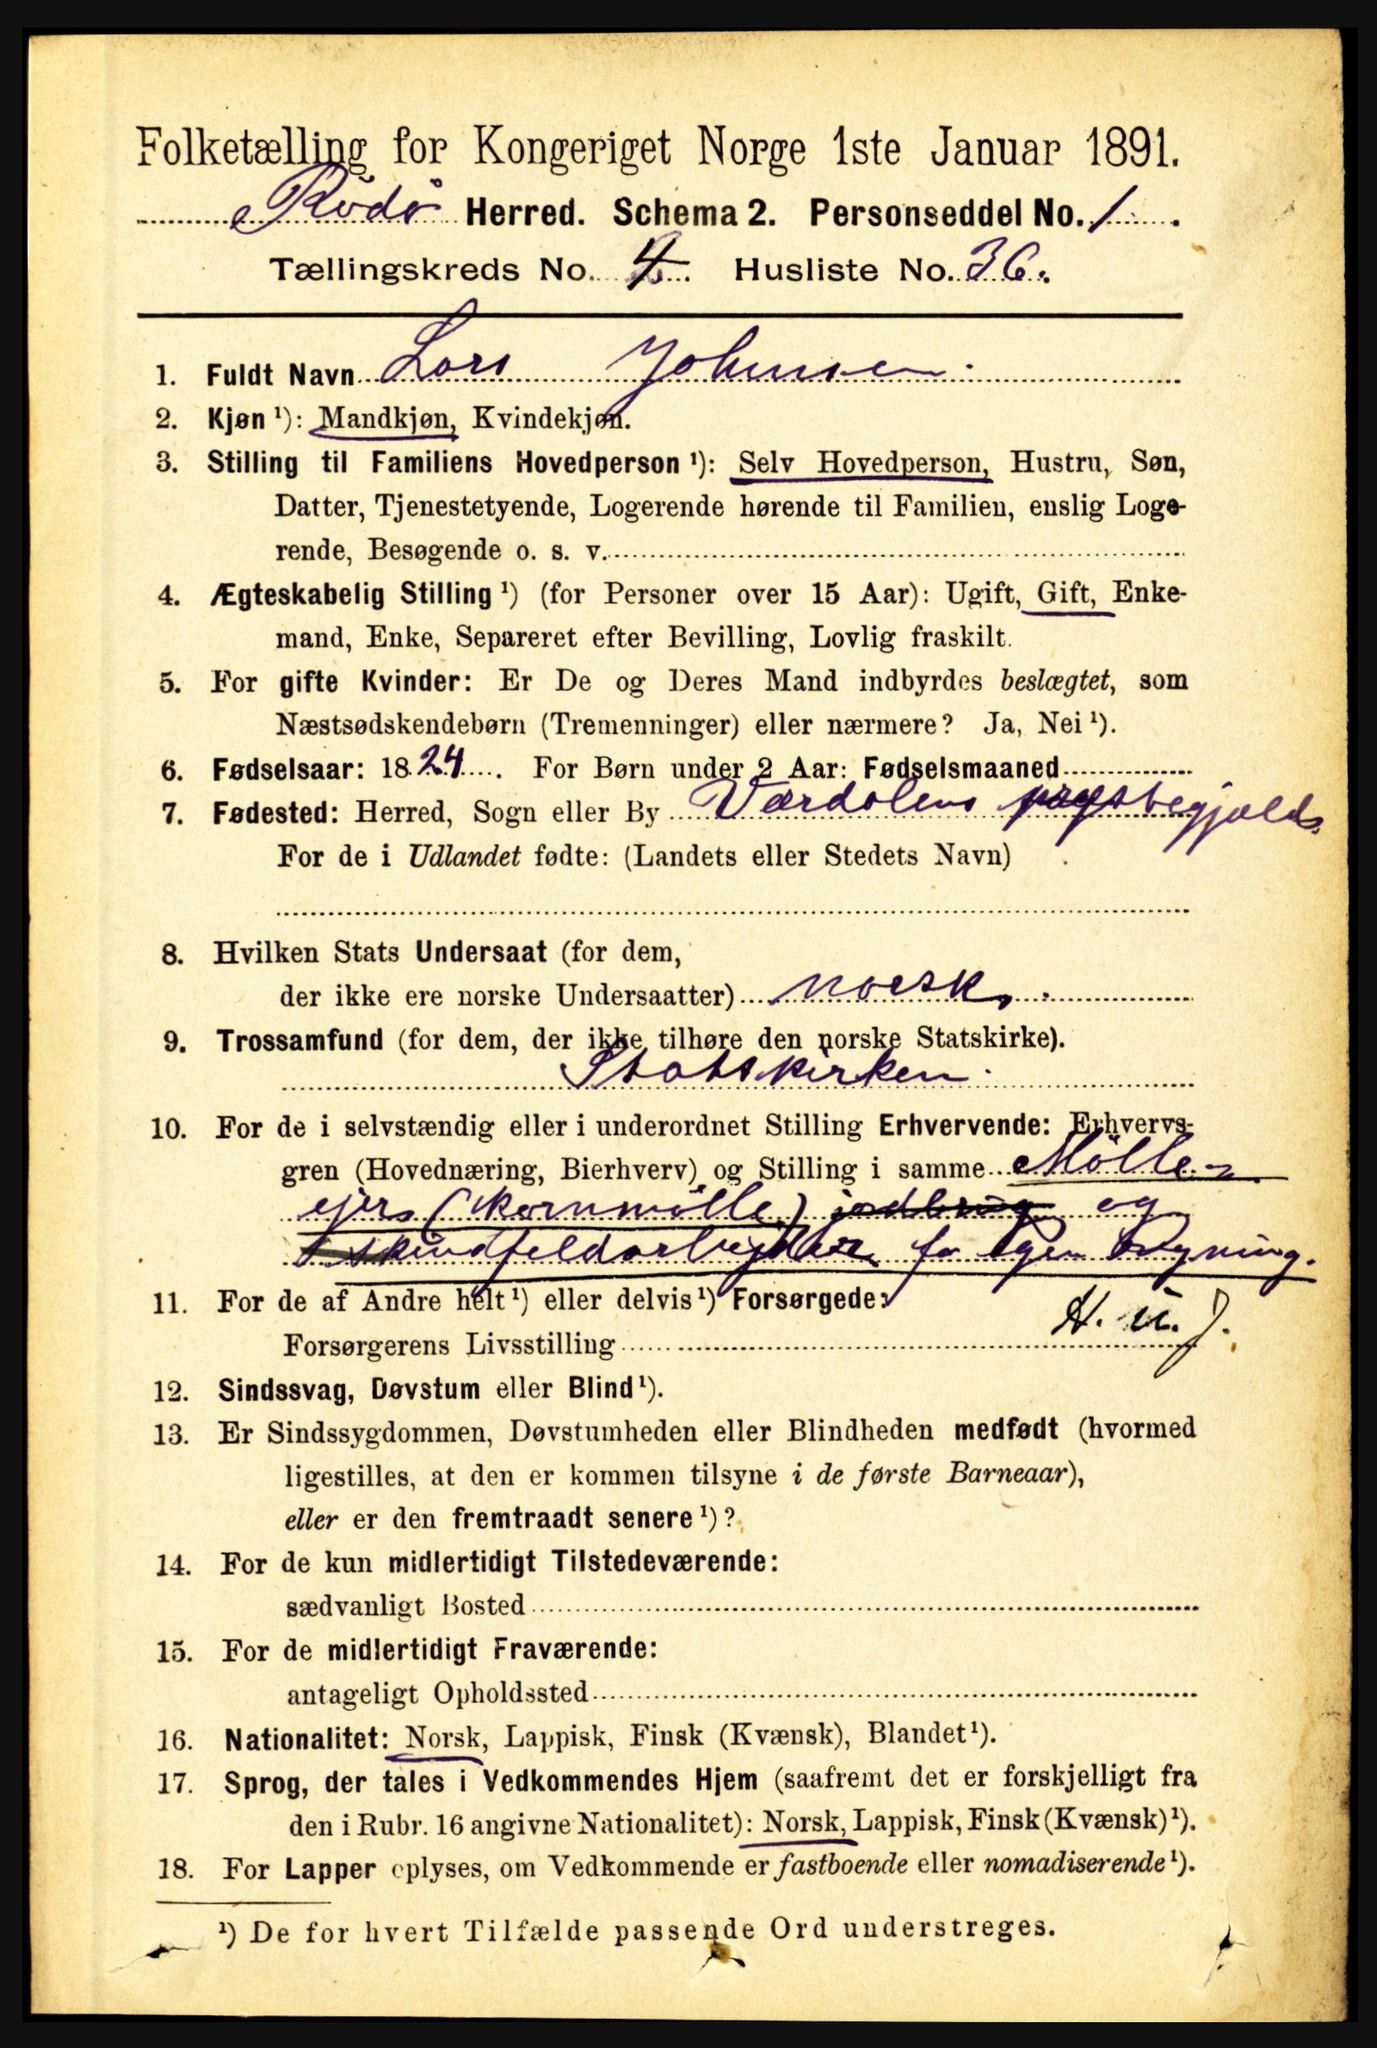 Folketælling for Kongeriget Norge 1ste Januar 1891.
Rødø Herred. Schema 2. Personseddel No. 1.
Tællingskreds No. 4. Husliste No. 36.
1. Fuldt Navn Lars Johnsen.
2. Kjøn ¹): Mandkjøn, Kvindekjøn.
3. Stilling til Familiens Hovedperson ¹): Selv Hovedperson, Hustru, Søn,
Datter, Tjenestetyende, Logerende hørende til Familien, enslig Loge-
rende, Besøgende o. s. v.
4. Ægteskabelig Stilling ¹) (for Personer over 15 Aar): Ugift, Gift, Enke-
mand, Enke, Separeret efter Bevilling, Lovlig fraskilt.
5. For gifte Kvinder: Er De og Deres Mand indbyrdes beslægtet, som
Næstsødskendebørn (Tremenninger) eller nærmere? Ja, Nei ¹).
6. Fødselsaar: 1824. For Børn under 2 Aar: Fødselsmaaned
7. Fødested: Herred, Sogn eller By Værdalens
For de i Udlandet fødte: (Landets eller Stedets Navn)
8. Hvilken Stats Undersaat (for dem,
der ikke ere norske Undersaatter) norsk.
9. Trossamfund (for dem, der ikke tilhøre den norske Statskirke).
Statskirken.
10. For de i selvstændig eller i underordnet Stilling Erhvervende: Erhvervs-
gren (Hovednæring, Bierhverv) og Stilling i samme Mølle-
ejer (kornmølle) jordbrug og
skindfeldarbejder for egen Regning.
11. For de af Andre helt ¹) eller delvis ¹) Forsørgede:
Forsørgerens Livsstilling H. u. J.
12. Sindssvag, Døvstum eller Blind ¹).
13. Er Sindssygdommen, Døvstumheden eller Blindheden medfødt (hvormed
ligestilles, at den er kommen tilsyne i de første Barneaar),
eller er den fremtraadt senere ¹)?
14. For de kun midlertidigt Tilstedeværende:
sædvanligt Bosted
15. For de midlertidigt Fraværende:
antageligt Opholdssted
16. Nationalitet: Norsk, Lappisk, Finsk (Kvænsk), Blandet ¹).
17. Sprog, der tales i Vedkommendes Hjem (saafremt det er forskjelligt fra
den i Rubr. 16 angivne Nationalitet): Norsk, Lappisk, Finsk (Kvænsk) ¹).
18. For Lapper oplyses, om Vedkommende er fastboende eller nomadiserende ¹).
¹) De for hvert Tilfælde passende Ord understreges.